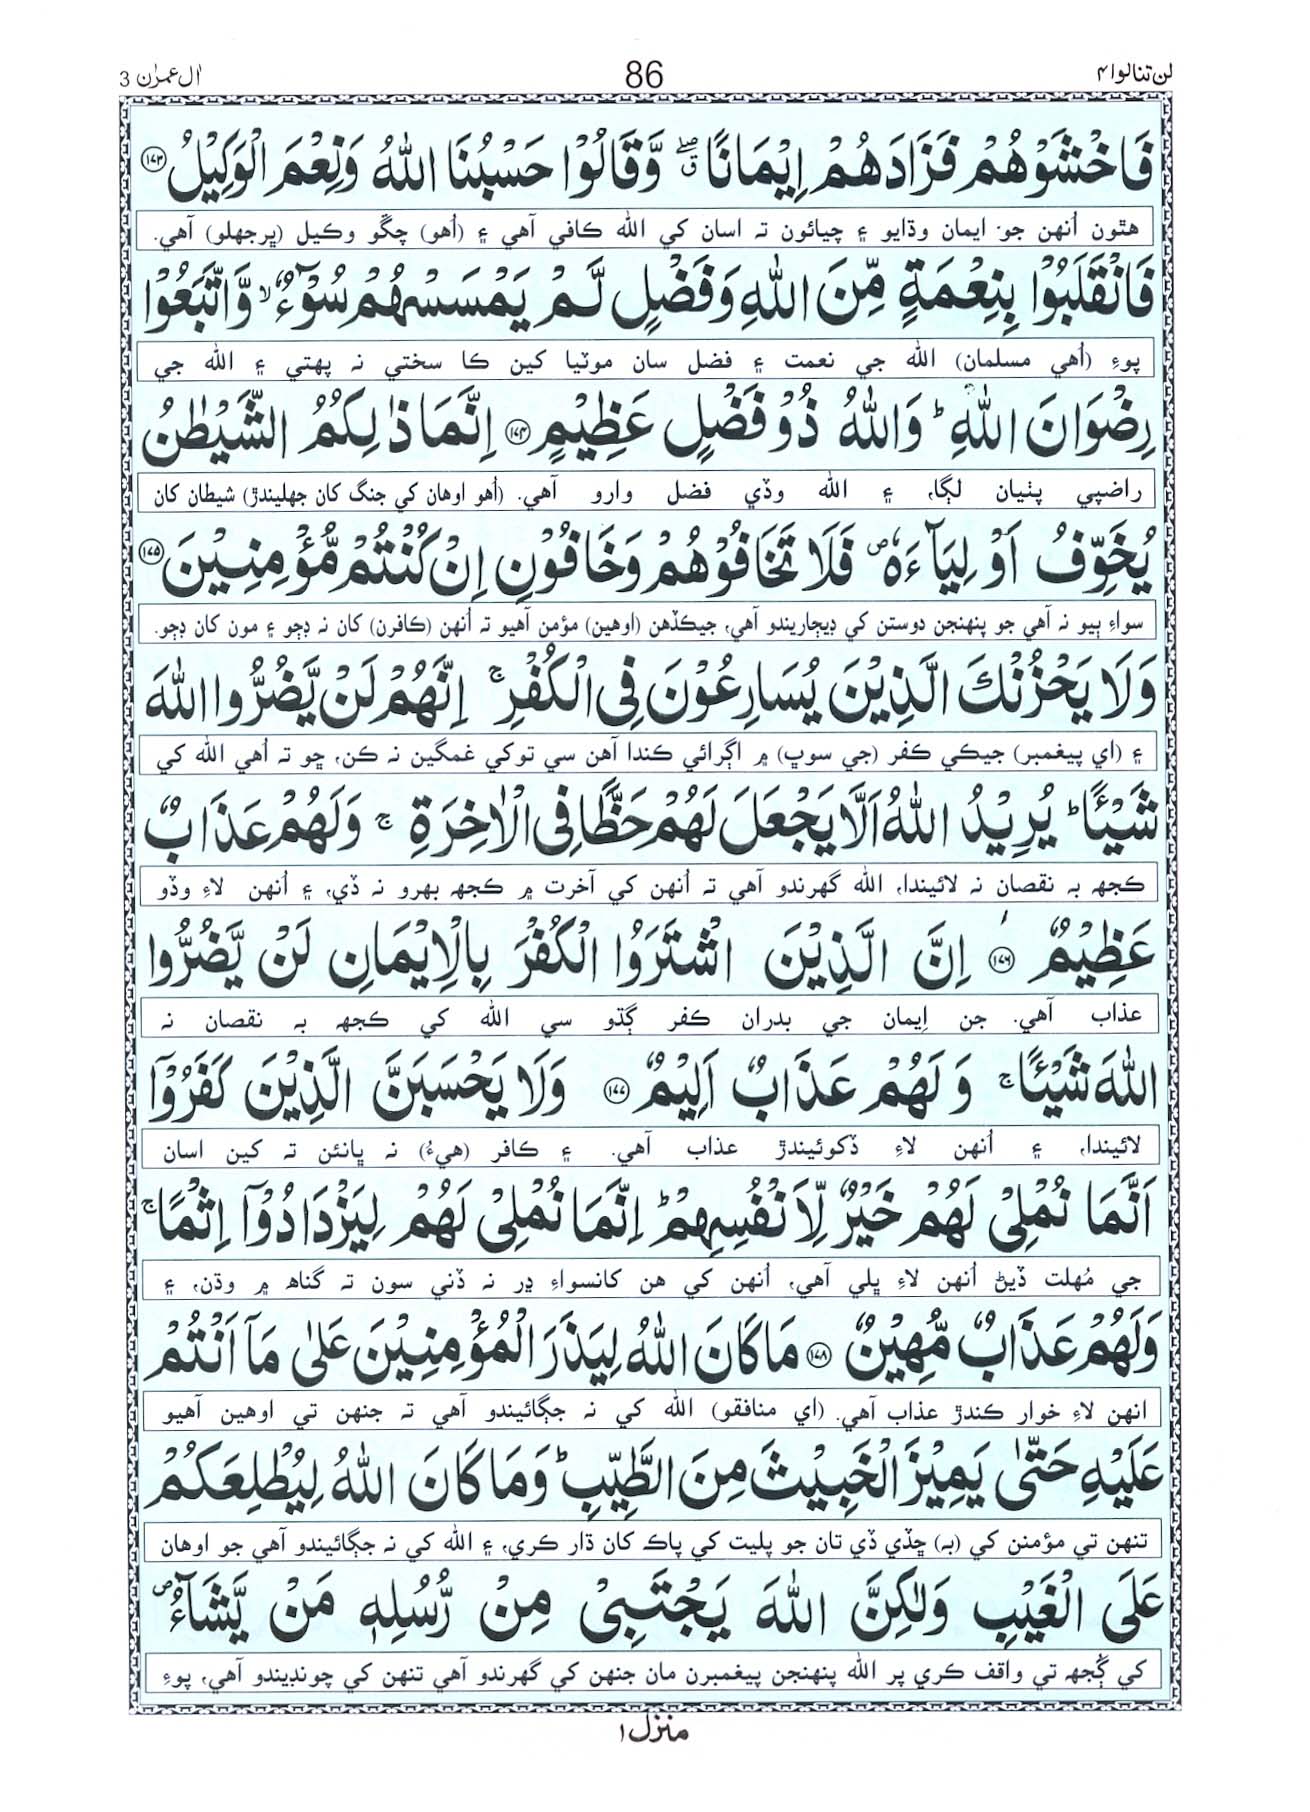 لن تنالوا ۴
86
اٰل عمرٰن 3
فَاخْشَوْهُمْ فَزَادَهُمْ اِيْمَانًا ۖۗ وَّقَالُوْا حَسْبُنَا اللّٰهُ وَنِعْمَ الْوَكِيْلُ ۝۱۷۳
هٿون اُنهن جو ايمان وڌايو ۽ چيائون تہ اسان کي الله ڪافي آهي ۽ (اُهو) چڱو وڪيل (پرجهلو) آهي.
فَانْقَلَبُوْا بِنِعْمَةٍ مِّنَ اللّٰهِ وَفَضْلٍ لَّمْ يَمْسَسْهُمْ سُوْٓءٌ ۙ وَّاتَّبَعُوْا
پوءِ (اُهي مسلمان) الله جي نعمت ۽ فضل سان موٽيا کين ڪا سختي نہ پهتي ۽ الله جي
رِضْوَانَ اللّٰهِ ؕ وَاللّٰهُ ذُوْ فَضْلٍ عَظِيْمٍ ۝۱۷۴ اِنَّمَا ذٰلِكُمُ الشَّيْطٰنُ
راضپي پٺيان لڳا، ۽ الله وڏي فضل وارو آهي. (اُهو اوهان کي جنگ کان جهليندڙ) شيطان کان
يُخَوِّفُ اَوْلِيَآءَهٗ ۪ فَلَا تَخَافُوْهُمْ وَخَافُوْنِ اِنْ كُنْتُمْ مُّؤْمِنِيْنَ ۝۱۷۵
سواءِ ٻيو نہ آهي جو پنهنجن دوستن کي ڊيڄاريندو آهي، جيڪڏهن (اوهين) مؤمن آهيو تہ اُنهن (ڪافرن) کان نہ ڊڄو ۽ مون کان ڊڄو.
وَلَا يَحْزُنْكَ الَّذِيْنَ يُسَارِعُوْنَ فِى الْكُفْرِ ۚ اِنَّهُمْ لَنْ يَّضُرُّوا اللّٰهَ
۽ (اي پيغمبر) جيڪي ڪفر (جي سوڀ) ۾ اڳرائي ڪندا آهن سي توکي غمگين نہ ڪن، ڇو تہ اُهي الله کي
شَيْـًٔا ؕ يُرِيْدُ اللّٰهُ اَلَّا يَجْعَلَ لَهُمْ حَظًّا فِى الْاٰخِرَةِ ۚ وَلَهُمْ عَذَابٌ
ڪجهہ بہ نقصان نہ لائيندا، الله گهرندو آهي تہ اُنهن کي آخرت ۾ ڪجهہ بهرو نہ ڏي، ۽ اُنهن لاءِ وڏو
عَظِيْمٌ ۝۱۷۶ اِنَّ الَّذِيْنَ اشْتَرَوُا الْكُفْرَ بِالْاِيْمَانِ لَنْ يَّضُرُّوا
عذاب آهي. جن اِيمان جي بدران ڪفر ڳڌو سي الله کي ڪجهہ بہ نقصان نہ
اللّٰهَ شَيْـًٔا ۚ وَلَهُمْ عَذَابٌ اَلِيْمٌ ۝۱۷۷ وَلَا يَحْسَبَنَّ الَّذِيْنَ كَفَرُوْٓا
لائيندا، ۽ اُنهن لاءِ ڏکوئيندڙ عذاب آهي. ۽ ڪافر (هيءُ) نہ ڀانئن تہ کين اسان
اَنَّمَا نُمْلِىْ لَهُمْ خَيْرٌ لِّاَنْفُسِهِمْ ؕ اِنَّمَا نُمْلِىْ لَهُمْ لِيَزْدَادُوْٓا اِثْمًا ۚ
جي مُهلت ڏيڻ اُنهن لاءِ ڀلي آهي، اُنهن کي هن کانسواءِ ڍر نہ ڏني سون تہ گناه ۾ وڌن، ۽
وَلَهُمْ عَذَابٌ مُّهِيْنٌ ۝۱۷۸ مَا كَانَ اللّٰهُ لِيَذَرَ الْمُؤْمِنِيْنَ عَلٰى مَآ اَنْتُمْ
انهن لاءِ خوار ڪندڙ عذاب آهي. (اي منافقو) الله کي نہ جڳائيندو آهي تہ جنهن تي اوهين آهيو
عَلَيْهِ حَتّٰى يَمِيْزَ الْخَبِيْثَ مِنَ الطَّيِّبِ ؕ وَمَا كَانَ اللّٰهُ لِيُطْلِعَكُمْ
تنهن تي مؤمنن کي (بہ) ڇڏي ڏي تان جو پليت کي پاڪ کان ڌار ڪري، ۽ الله کي نہ جڳائيندو آهي جو اوهان
عَلَى الْغَيْبِ وَلٰكِنَّ اللّٰهَ يَجْتَبِىْ مِنْ رُّسُلِهٖ مَنْ يَّشَآءُ ۪
کي ڳُجهہ تي واقف ڪري پر الله پنهنجن پيغمبرن مان جنهن کي گهرندو آهي تنهن کي چونڊيندو آهي، پوءِ
منزل ۱